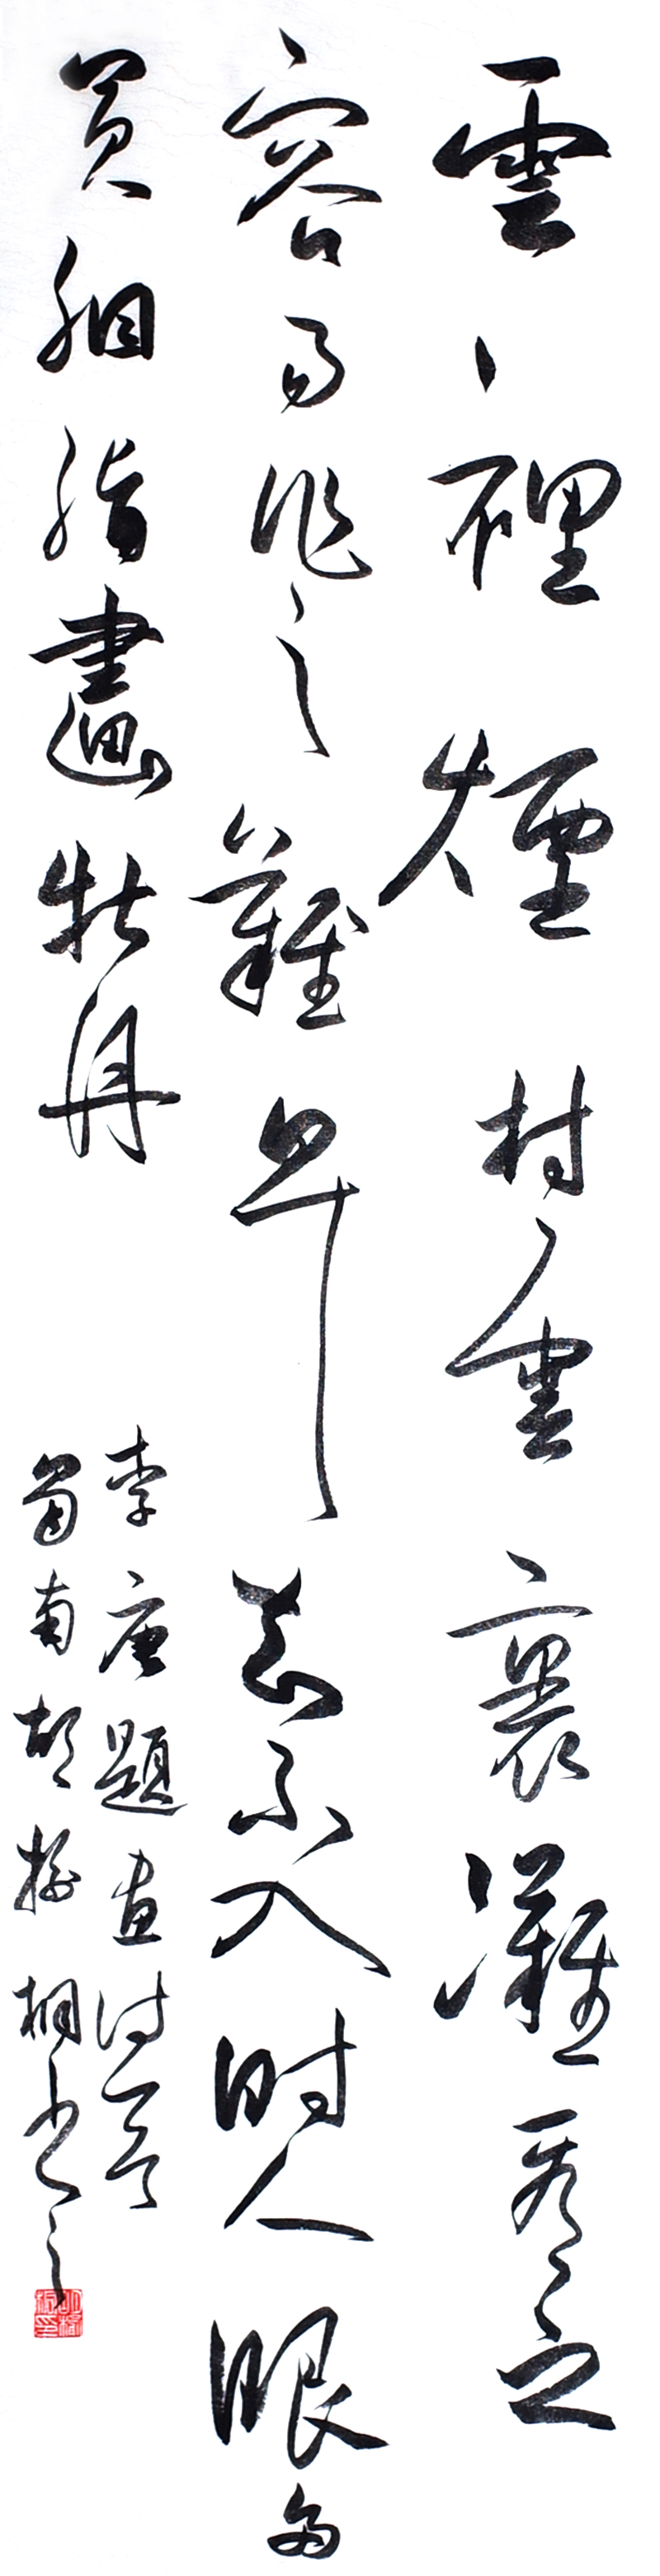 雲裡煙村雲裏灘看之
容易作之難早知不入時人眼多
買胭脂畫牡丹
李唐題画诗一首
蜀南胡桐书之